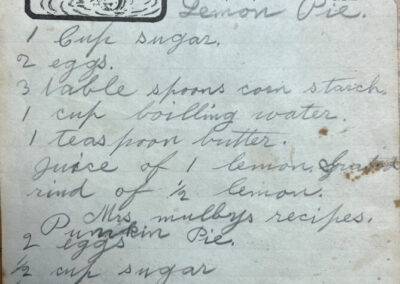 Lemon Pie.
1 Cup sugar.
2 eggs.
3 table spoons corn starch.
1 cup boilling water.
1 teaspoon butter.
Juice of 1 lemon. Grated
rind of ½ lemon.
Mrs. mulbys recipes.
Pumpkin Pie.
2 eggs
½ cup sugar